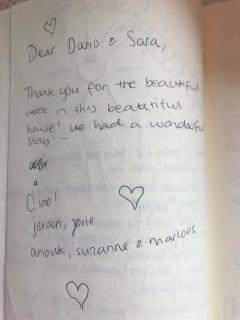 Dear Dario & Sara,
Thank you for the beautiful
week in this beatutiful
house! we had a wonderful
stay! -
a
Ciao!
jeroen, josie
anouk, suzanne & marloes